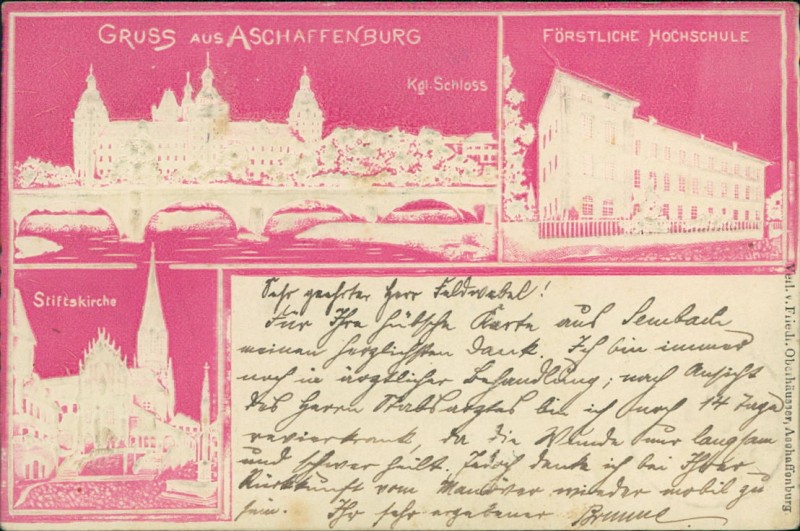 GRUSS AUS ASCHAFFENBURG
Kgl. Schloss
FÖRSTLICHE HOCHSCHULE
Stiftskirche
Sehr geehrter Herr Feldwebel!
Für Ihre hübsche Karte aus Sembach
meinen herzlichsten Dank. Ich bin immer
noch in ärztlicher Behandlung; nach Ansicht
des Herrn Stabsarztes bin ich noch 14 Tage
revierkrank, da die Wunde nur langsam
und schwer heilt. Jedoch denke ich bei Ihrer
Rückkunft vom Manöver wieder mobil zu
sein. Ihr sehr ergebener
Verl. v. Friedr. Oberhäusser, Aschaffenburg.